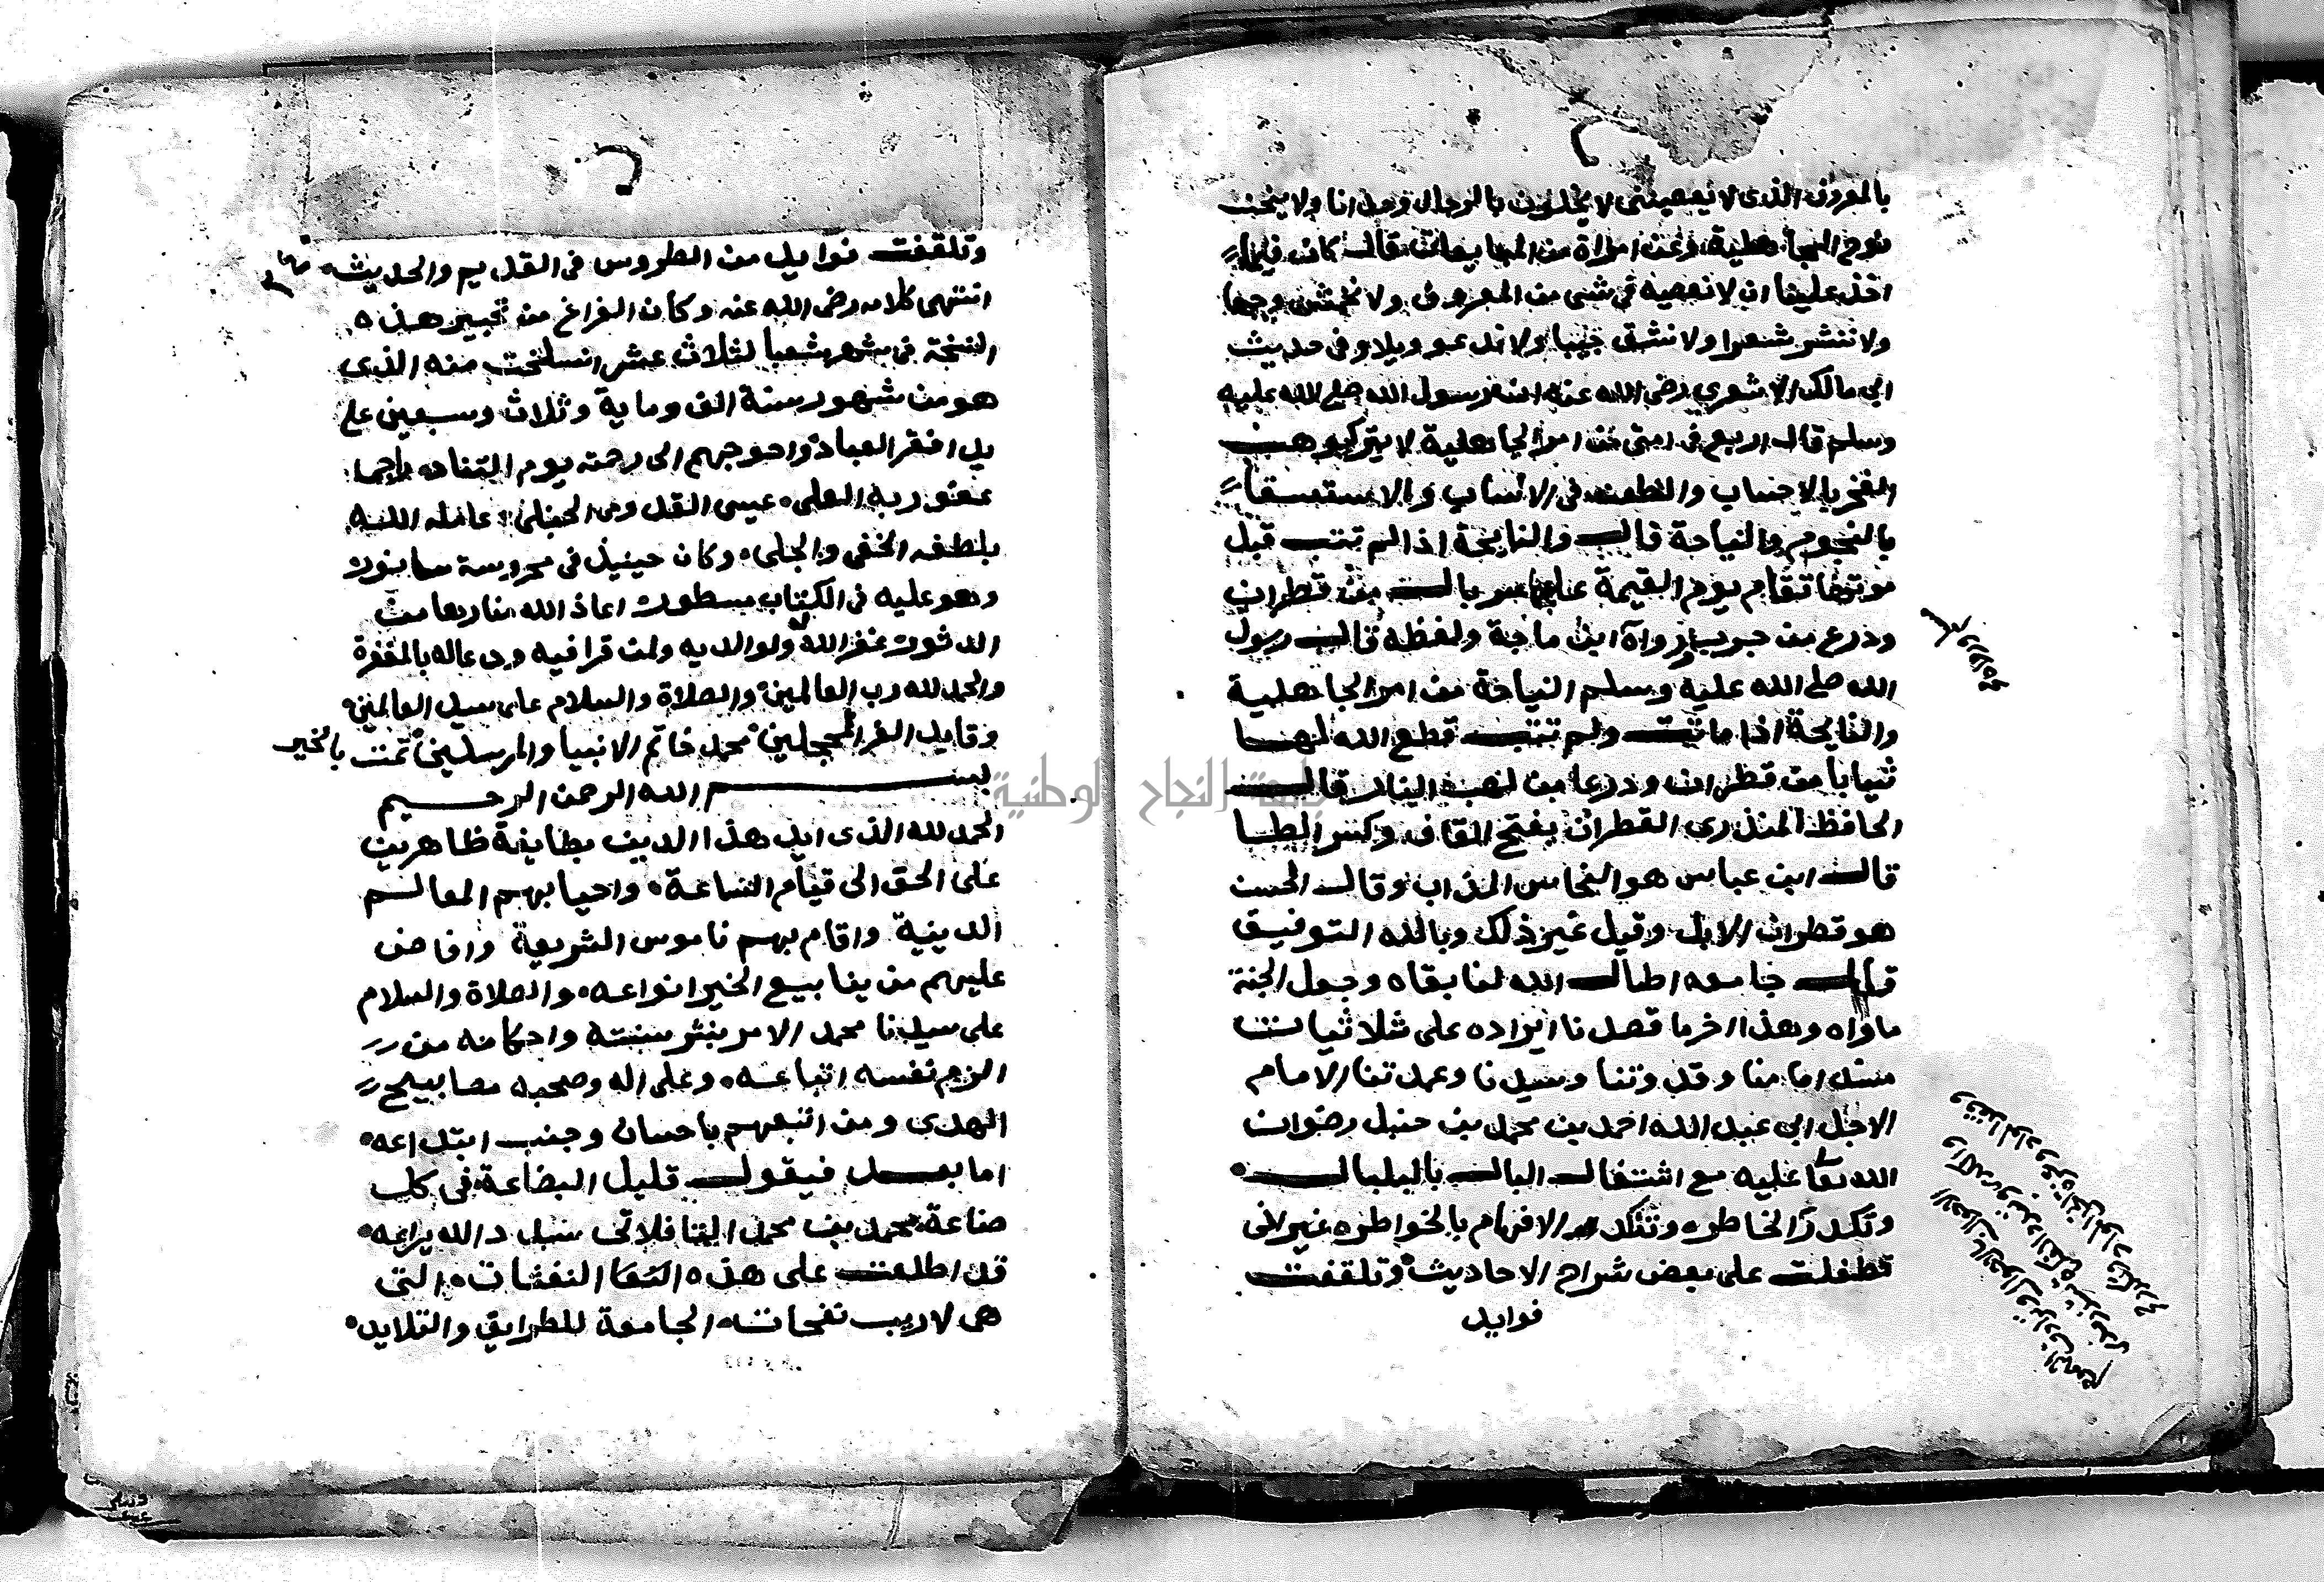 بالمعروف الذى لا يعصيننى لا يخلون بالرجال وحدانا ولا ينحن
نوح الجاهلية وعن امراة من المبايعات قالت كان فيما
اخذ علينا ان لا نعصيه فى شى من المعروف ولا نخمش وجها
ولا ننشر شعرا ولا نشق جيبا ولا ندعو ويلا وفى حديث
ابى مالك الاشعري رضى الله عنه ان رسول الله صلى الله عليه
وسلم قال اربع فى امتى من امر الجاهلية لا يتركوهن
الفخر بالاحساب والطعن فى الانساب والاستسقا
بالنجوم والنياحة قال والنايحة اذا لم تتب قبل
موتها تقام يوم القيمة عليها سربال من قطران
ودرع من جرب رواه ابن ماجة ولفظه قال رسول
الله صلى الله عليه وسلم النياحة من امر الجاهلية
والنايحة اذا ماتت ولم تتب قطع الله لها
ثيابا من قطران ودرعا من لهب النار قال
الحافظ المنذرى القطران بفتح القاف وكسر الطا
قال ابن عباس هو النحاس المذاب وقال الحسن
هو قطران الابل وقيل غير ذلك وبالله التوفيق
قال جامعه اطال الله لنا بقاه وجعل الجنة
ماواه وهذا اخر ما قصدنا ايراده على ثلاثيات
مسند امامنا وقدوتنا وسيدنا وعمدتنا الامام
الاجل ابى عبد الله احمد بن محمد بن حنبل رضوان
الله تعا عليه مع اشتغال البال بالبلبال
وتكدر الخاطر وتنكد الافهام بالخواطر غير انى
تطفلت على بعض شراح الاحاديث وتلقفت
فوايد
وتلقفت فوايد من الطروس فى القديم والحديث
انتهى كلامه رضى الله عنه وكان الفراغ من تحبير هذه
النسخة فى شهر شعبا لثلاث عشر انسلخت منه الذى
هو من شهور سنة الف وماية وثلاث وسبعين على
يد افقر العباد واحوجهم الى رحمة يوم التناد
عفو ربه العلى عيسى القدومى الحنبلى عامله الله
بلطفه الخفى والجلى وكان حينيذ فى محروسة
وهو عليه فى الكتاب مسطور اعاذ الله
الدثور غفر الله له ولوالديه ولمن قرا فيه ودعا له بالمغفرة
والحمد لله رب العالمين والصلاة والسلام على سيد العالمين
وقايد الغر المحجلين محمد خاتم الانبيا والمرسلين تمت بالخير
بسم الله الرحمن الرحيم
الحمد لله الذى ايد هذا الدين بطايفة ظاهرين
على الحق الى قيام الساعة واحيا بهم المعالم
الدينية واقام بهم ناموس الشريعة وافاض
عليهم من ينابيع الخير انواعه والصلاة والسلام
على سيدنا محمد الامر بنشر سنته واحكامه من
الزم نفسه اتباعه وعلى اله وصحبه مصابيح
الهدى ومن اتبعهم باحسان وجنب ابتداعه
اما بعد فيقول قليل البضاعة فى كل
صناعة محمد بن محمد التافلاتى سدد الله يراعه
قد اطلعت على هذه النفثات التى
هى لا ريب نفحات الجامعة للطرايق والتلايد
جامعة النجاح الوطنية